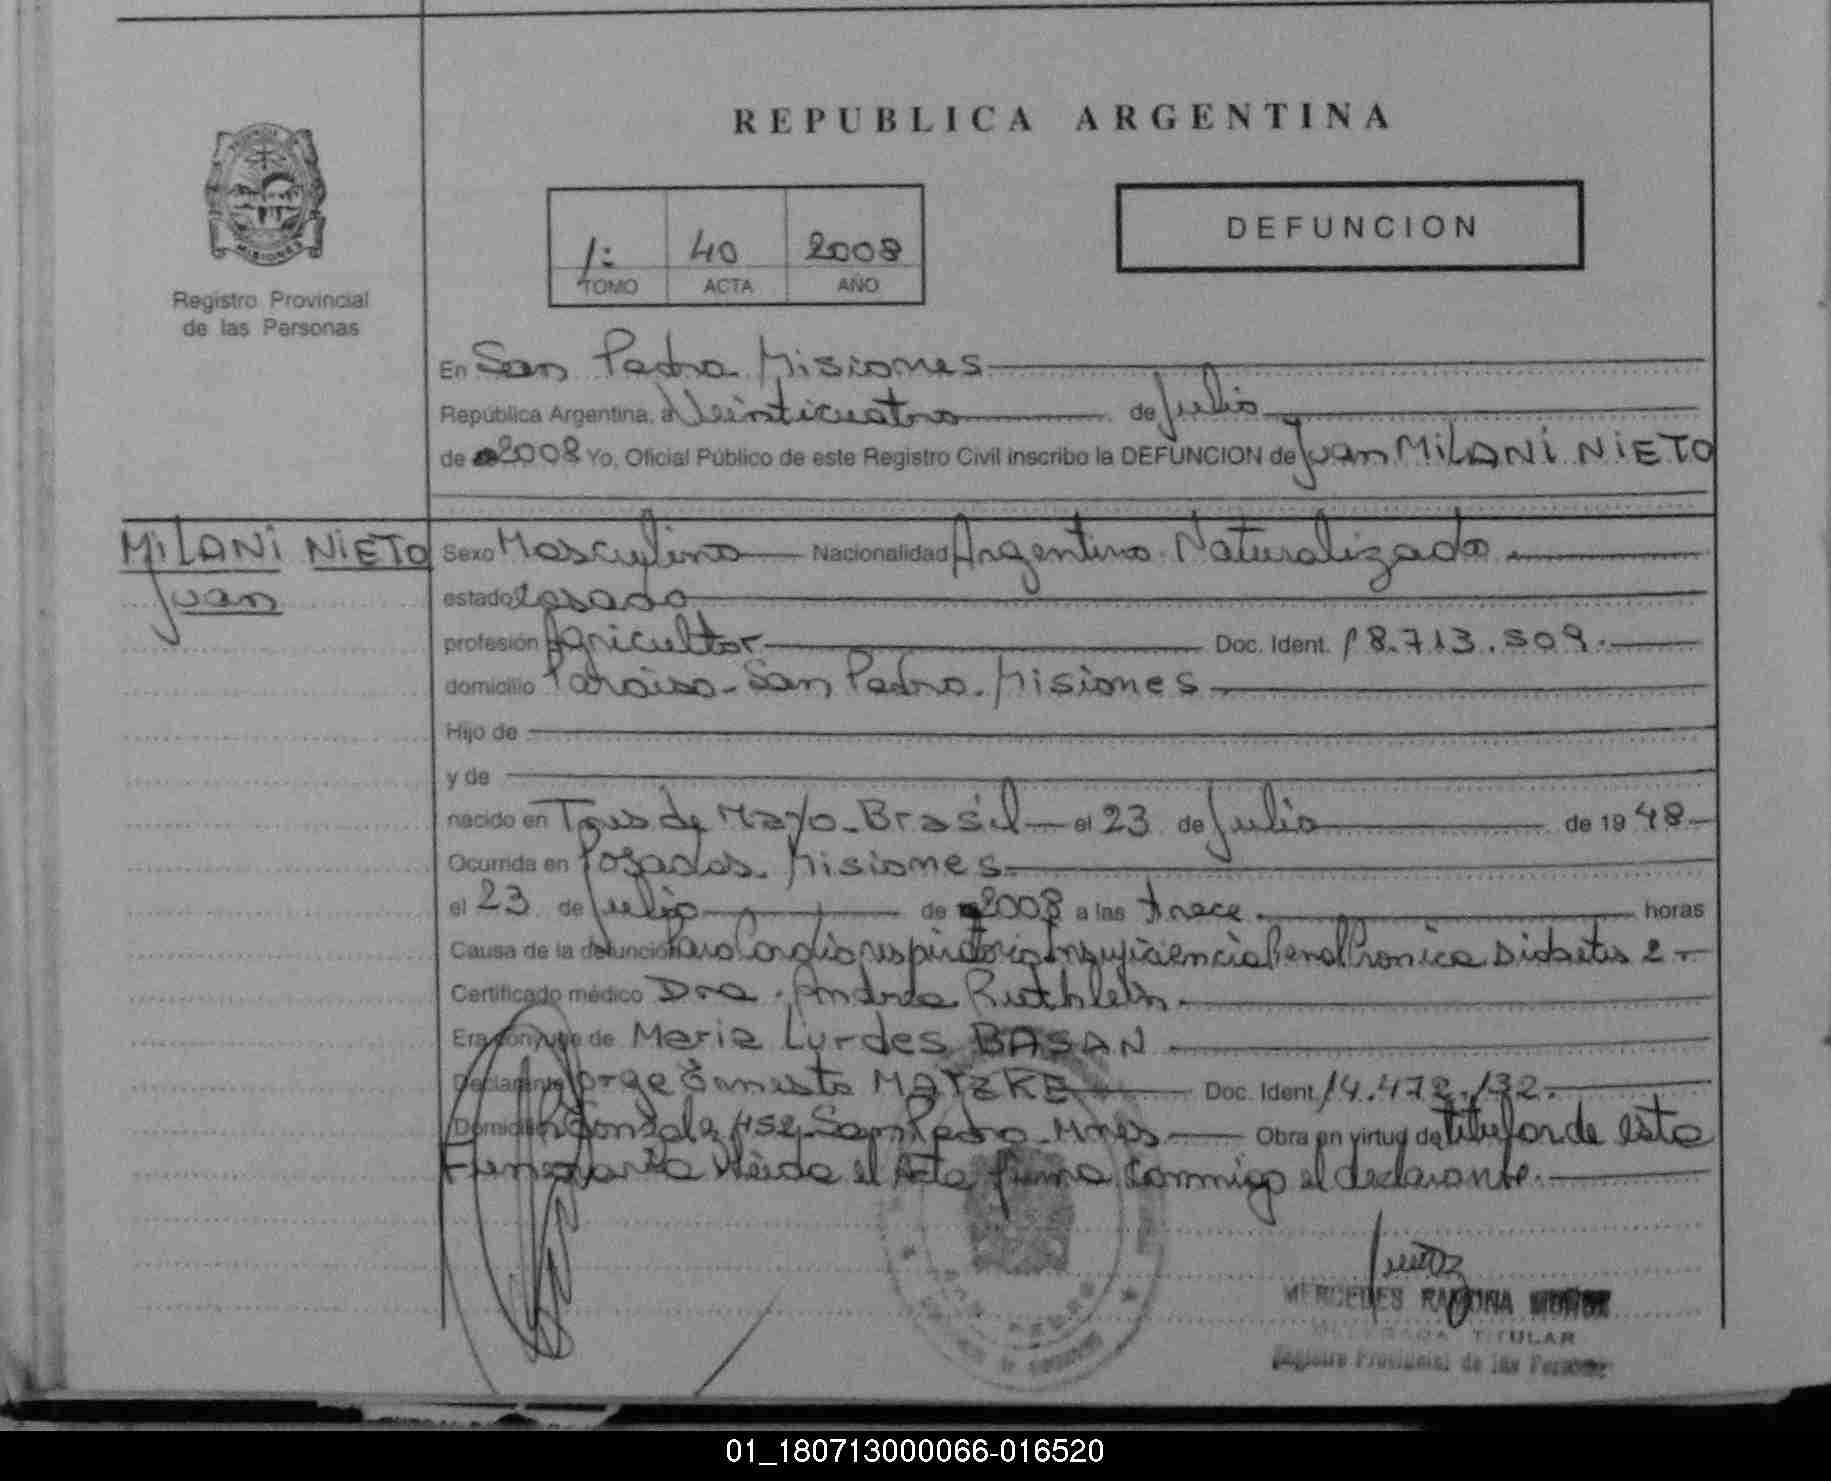 REPUBLICA ARGENTINA
DEFUNCION
1: 40 2008
TOMO ACTA AÑO
MISIONES
Registro Provincial
de las Personas
En San Pedro Misiones
República Argentina, a Veinticuatro de Julio
de 2008 Yo, Oficial Público de este Registro Civil inscribo la DEFUNCION de Juan MiLANi NiETO
MiLANi NiETO
Juan
Sexo Masculino Nacionalidad Argentino Naturalizado
estado Casado
profesión Agricultor Doc. Ident. 18.713.509.
domicilio Paraiso - San Pedro. Misiones
Hijo de
y de
nacido en Tres de Mayo - Brasil el 23 de Julio de 19 48
Ocurrida en Posadas. Misiones
el 23 de Julio de 2008 a las trece horas
Causa de la defunción Paro Cardiorespiratorio Insuficiencia Renal Cronica Diabetis 2
Certificado médico Dra. Andrea
Era cónyuge de Maria Lurdes BASAN
Declarante Jorge Ernesto MATZKE Doc. Ident. 14.472.132.
Domicilio Gonzalez San Pedro Mnes Obra en virtud de titular de esta
Funeraria Leida el Acta firma conmigo el declarante.
MERCEDES RAMONA MUÑOZ
TITULAR
Registro Provincial de las Personas
01_180713000066-016520